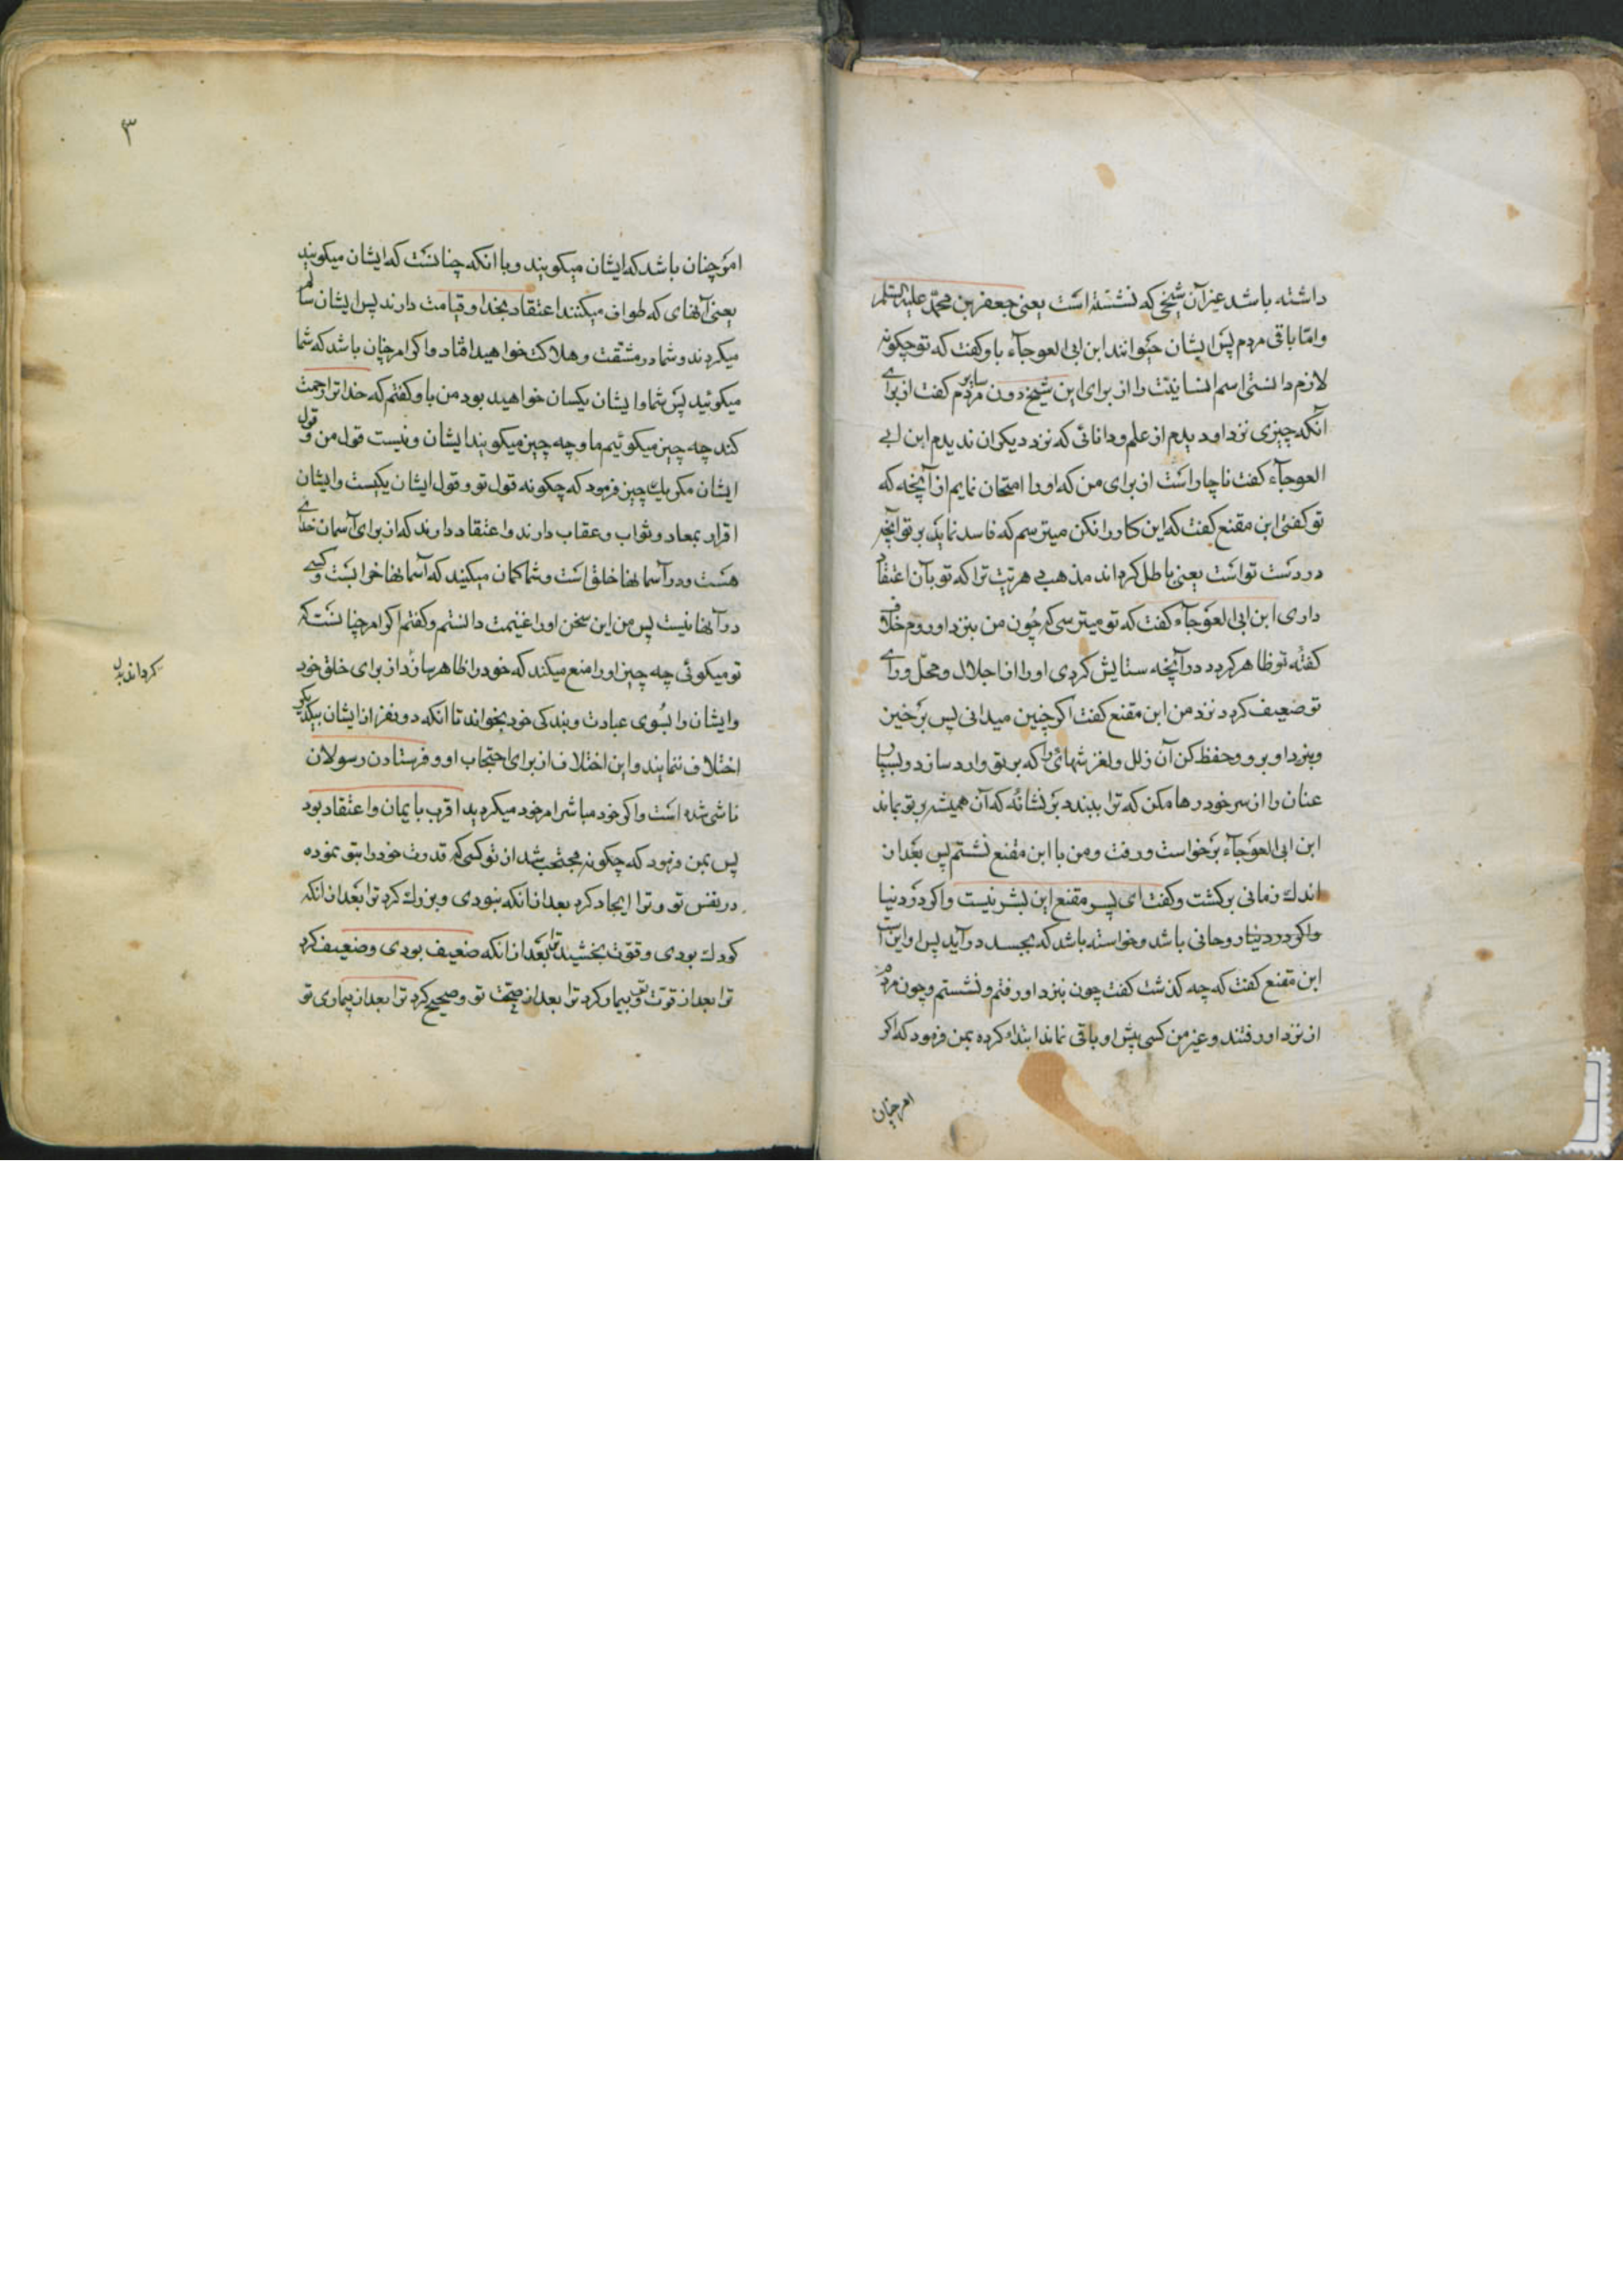 داشته باشد غیر آن شیخی که نشسته است یعنی جعفر بن محمد علیه السلم
واما باقی مردم پس ایشان حیوانند ابن ابی العوجآء باو کفت که تو چکونه
لازم دانستی اسم انسانیت را از برای این شیخ دون سایر مردم کفت از برای
آنکه چیزی نزد او دیدم از علم و دانائی که نزد دیکران ندیدم ابن ابی
العوجآء کفت ناچار است از برای من که او را امتحان نمایم از آنچه که
تو کفتی ابن مقنع کفت که این کار را نکن میترسم که فاسد نماید بر تو آنچه
در دست تو است یعنی باطل کرداند مذهبی هر تیت ترا که تو بآن اعتقاد
داری ابن ابی العوجآء کفت که تو میترسی که چون من بنزد او روم خلاف
کفته تو ظاهر کردد در آنچه ستایش کردی او را از اجلال و محل و رای
تو ضعیف کردد نزد من ابن مقنع کفت اکر چنین میدانی پس برخیز
و بنزد او برو و حفظ کن آن زلل و لغزشهائی را که بر تو وارد سازد و لبسیار
عنان را از سر خود رها مکن که ترا ببندد بر نشانه که آن همیشه بر تو بماند
ابن ابی العوجآء برخواست و رفت و من با ابن مقنع نشستم پس بعد از
اندك زمانی برکشت و کفت ای پسر مقنع این بشر نیست و اکر در دنیا
واکر در دنیا روحانی باشد و خواسته باشد که بجسد در آید پس او این است
ابن مقنع کفت که چه کذشت کفت چون بنزد او رفتم و نشستم و چون مردم
از نزد او رفتند و غیر من کسی پیش او باقی نماند ابتدا کرده بمن فرمود که اکر
امر چنان
۳
امر چنان باشد که ایشان میکویند و با انکه چنانست که ایشان میکویند
یعنی آنهای که طواف میکنند اعتقاد بخدا و قیامت دارند پس ایشان سالم
میکردند و شما در مشقت و هلاکت خواهید افتاد و اکر امر چنان باشد که شما
میکوئید پس شما و ایشان یکسان خواهید بود من باو کفتم که خدا ترا رحمت
کند چه چیز میکوئیم ما و چه چیز میکویند ایشان و نیست قول من و قول
ایشان مکر یك چیز فرمود که چکونه قول تو و قول ایشان یکیست و ایشان
اقرار بمعاد و ثواب و عقاب دارند و اعتقاد دارند که از برای آسمان خدای
هست و در آسمانها خلق است و شما کمان میکنید که آسمانها خرابست و کسی
در آنها نیست پس من این سخن او را غنیمت دانستم و کفتم اکر امر چنانست که
تو میکوئی چه چیز او را منع میکند که خود را ظاهر سازد از برای خلق خود
و ایشان را بسوی عبادت و بندکی خود بخواند تا انکه دو نفر از ایشان بیکدیکر
اختلاف ننمایند و این اختلاف از برای احتجاب او و فرستادن رسولان
ناشی شده است و اکر خود مباشر امر خود میکردید اقرب بایمان و اعتقاد بود
پس بمن فرمود که چکونه محتجب شد از تو کسی که قدرت خود را بتو نموده
در نفس تو و ترا ایجاد کرد بعد از انکه نبودی و بزرك کرد ترا بعد از انکه
کودك بودی و قوّت بخشید ترا بعد از انکه ضعیف بودی و ضعیف کرد
ترا بعد از قوّت تو و بیمار کرد ترا بعد از صحّت تو و صحیح کرد ترا بعد از بیماری تو
کرداند